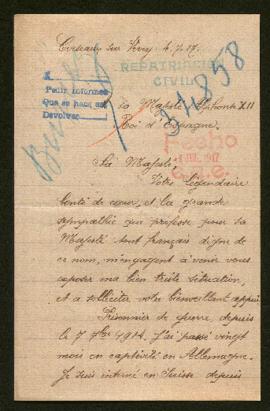 Corseaux sur Vevey 4.7.17.
REPATRIACION
CIVIL
Pedir informes
Que se haga así
Devolver
34858
Sa Majesté Alphonse XIII
Roi d'Espagne.
Fecho
JUL. 1917
Sa Majesté,
Votre légendaire
bonté de cœur, et la grande
sympathie que professe pour Sa
Majesté tout français digne de
ce nom, m'engagent à venir vous
exposer ma bien triste situation,
et a solliciter votre bienveillant appui.
Prisonnier de guerre depuis
le 7 7bre 1914. J'ai passé vingt
mois en captivité en Allemagne.
Je suis interné en Suisse depuis